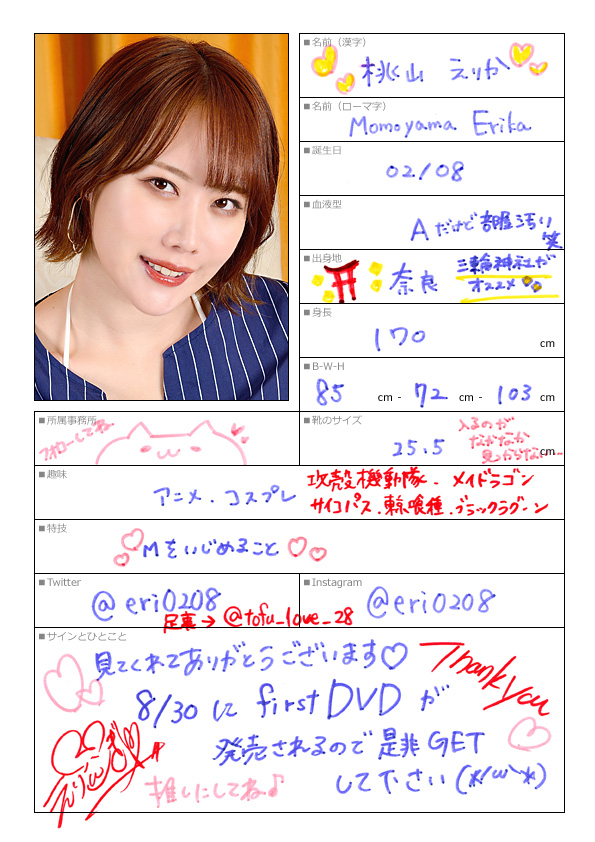 ■名前（漢字）
桃山 えりか
■名前（ローマ字）
Momoyama Erika
■誕生日
02/08
■血液型
Aだけど部屋汚い
笑
■出身地
奈良 三輪神社が
オススメ
■身長
170 cm
■B-W-H
85 cm - 72 cm - 103 cm
■所属事務所
フォローしてね
■靴のサイズ
25.5 cm
入るのが
なかなか
見つからない…
■趣味
アニメ.コスプレ 攻殻機動隊. メイドラゴン
サイコパス.東京喰種.ブラックラグーン
■特技
Mをいじめること
■Twitter
@eri0208
足裏→@tofu_love_28
■Instagram
@eri0208
■サインとひとこと
見てくれてありがとうございます♡ Thank you
8/30に first DVD が
発売されるので是非GET
して下さい(*/ω\*)
推しにしてね♪